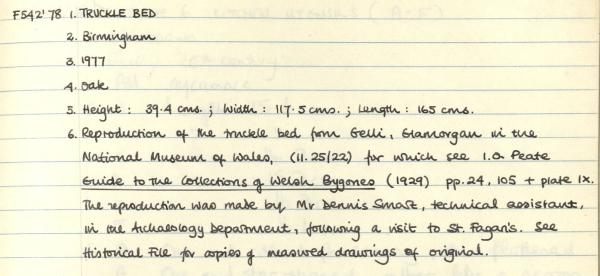 F542'78 1. TRUCKLE BED
2. Birmingham
3. 1977
4. Oak
5. Height : 39.4 cms. ; Width : 117.5 cms. ; Length : 165 cms.
6. Reproduction of the truckle bed from Gelli, Glamorgan in the
National Museum of Wales, (11.25/22) for which see I.O. Peate
Guide to the Collections of Welsh Bygones (1929) pp.24, 105 + plate IX.
The reproduction was made by Mr Dennis Smart, technical assistant,
in the Archaeology Department, following a visit to St. Fagan's. See
Historical File for copies of measured drawings of original.